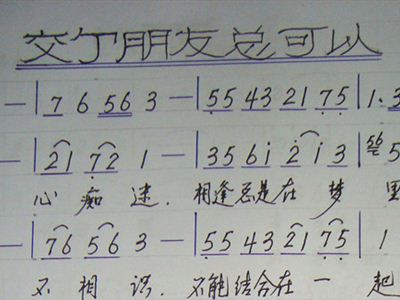 交个朋友总可以
— | 7 6 56 3 — | 55 43 21 75 | 1. 3
— | 21 72 1 — | 3561 213 | 5
心 痴 迷. 相逢总是在 梦 里
— | 76 56 3 — | 55 43 21 75 | 1
不 相 识. 不能结合在 一 起